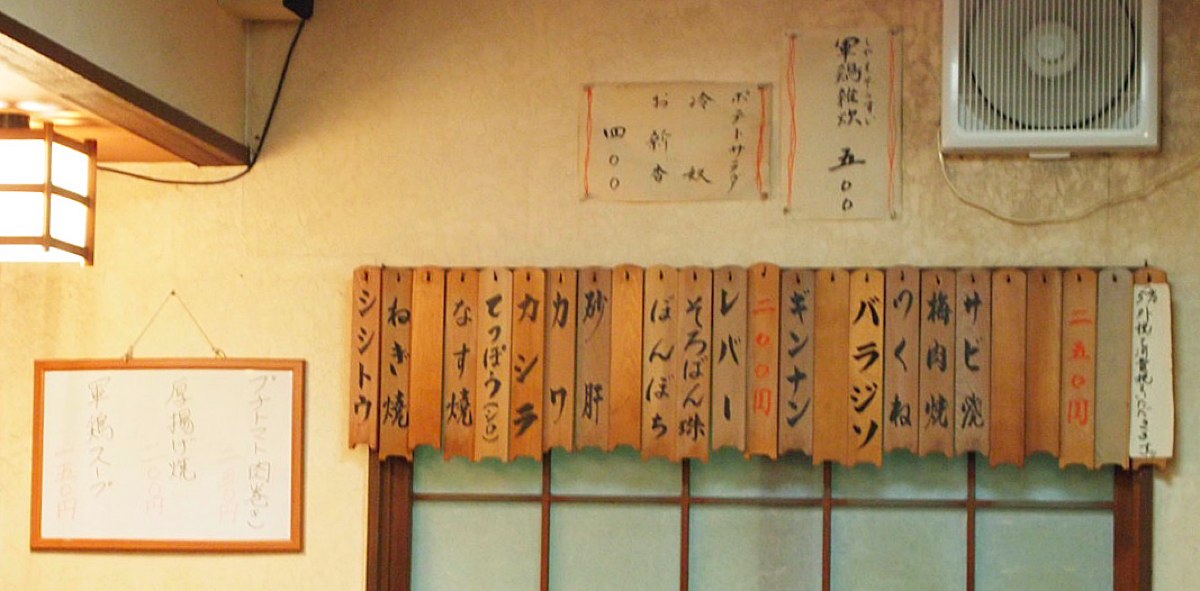 軍鶏雑炊 五〇〇
しゃもぞうすい
ポテトサラダ
冷奴
お新香
四〇〇
二五〇円
サビ焼
梅肉焼
つくね
バラジソ
ギンナン
二〇〇円
レバー
そろばん珠
ぼんぼち
砂肝
カワ
カシラ
てっぽう(シロ)
なす焼
ねぎ焼
シシトウ
プチトマト肉巻き
厚揚げ焼
二〇〇円
軍鶏スープ
一五〇円